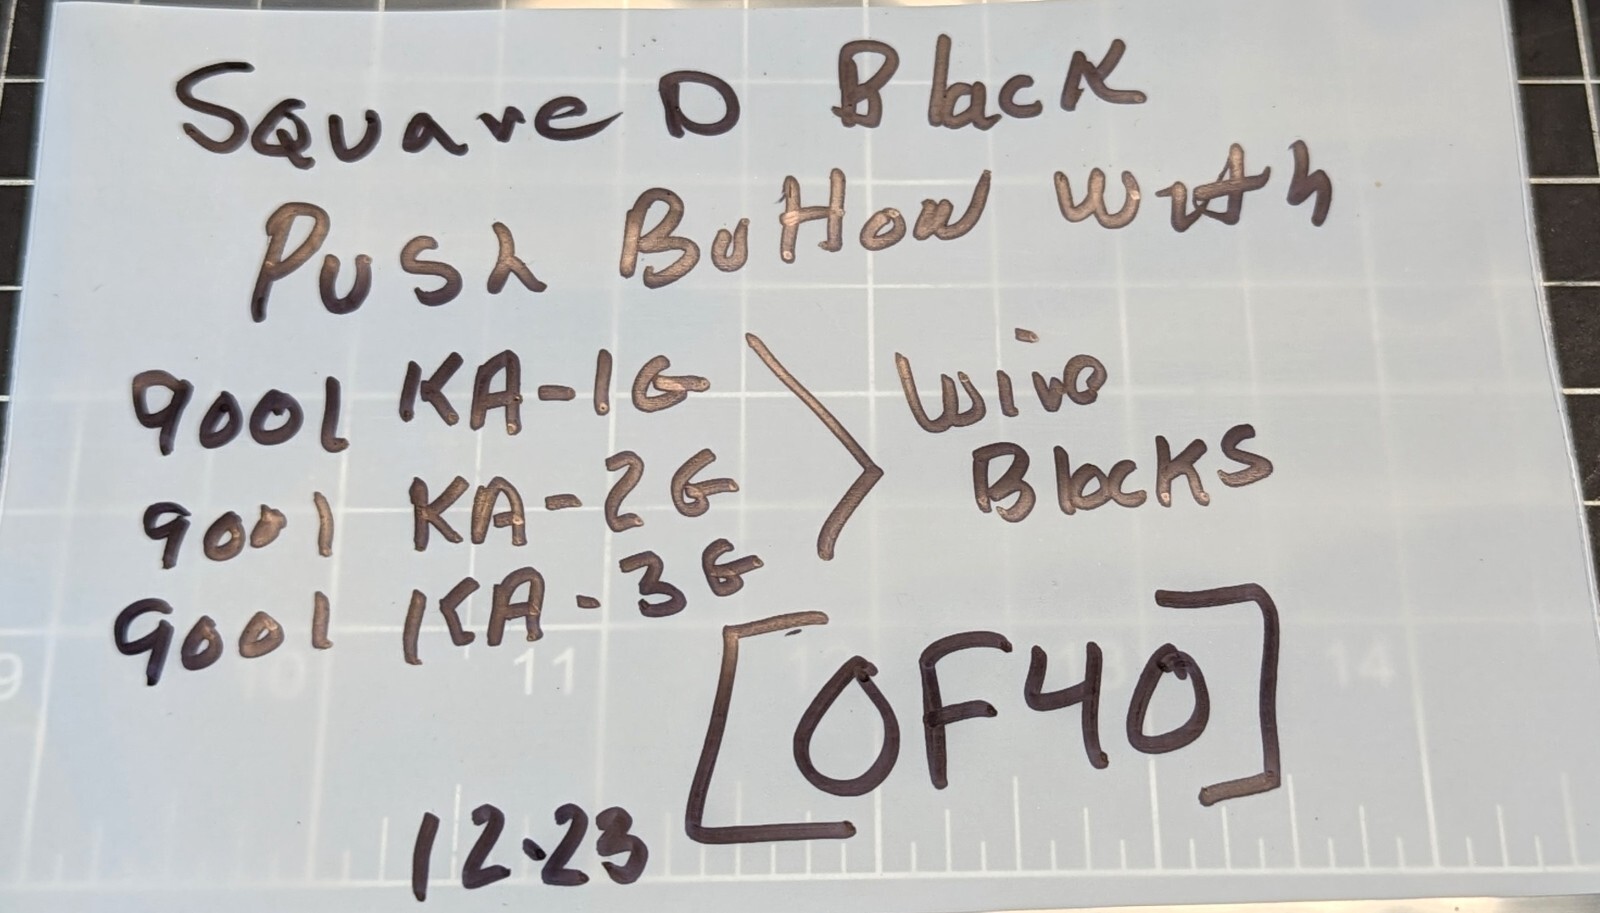 Square D Black
Push Button with
9001 KA-1G
9001 KA-2G
9001 KA-3G
Wire
Blocks
[OF40]
12.23
9
10
11
12
13
14